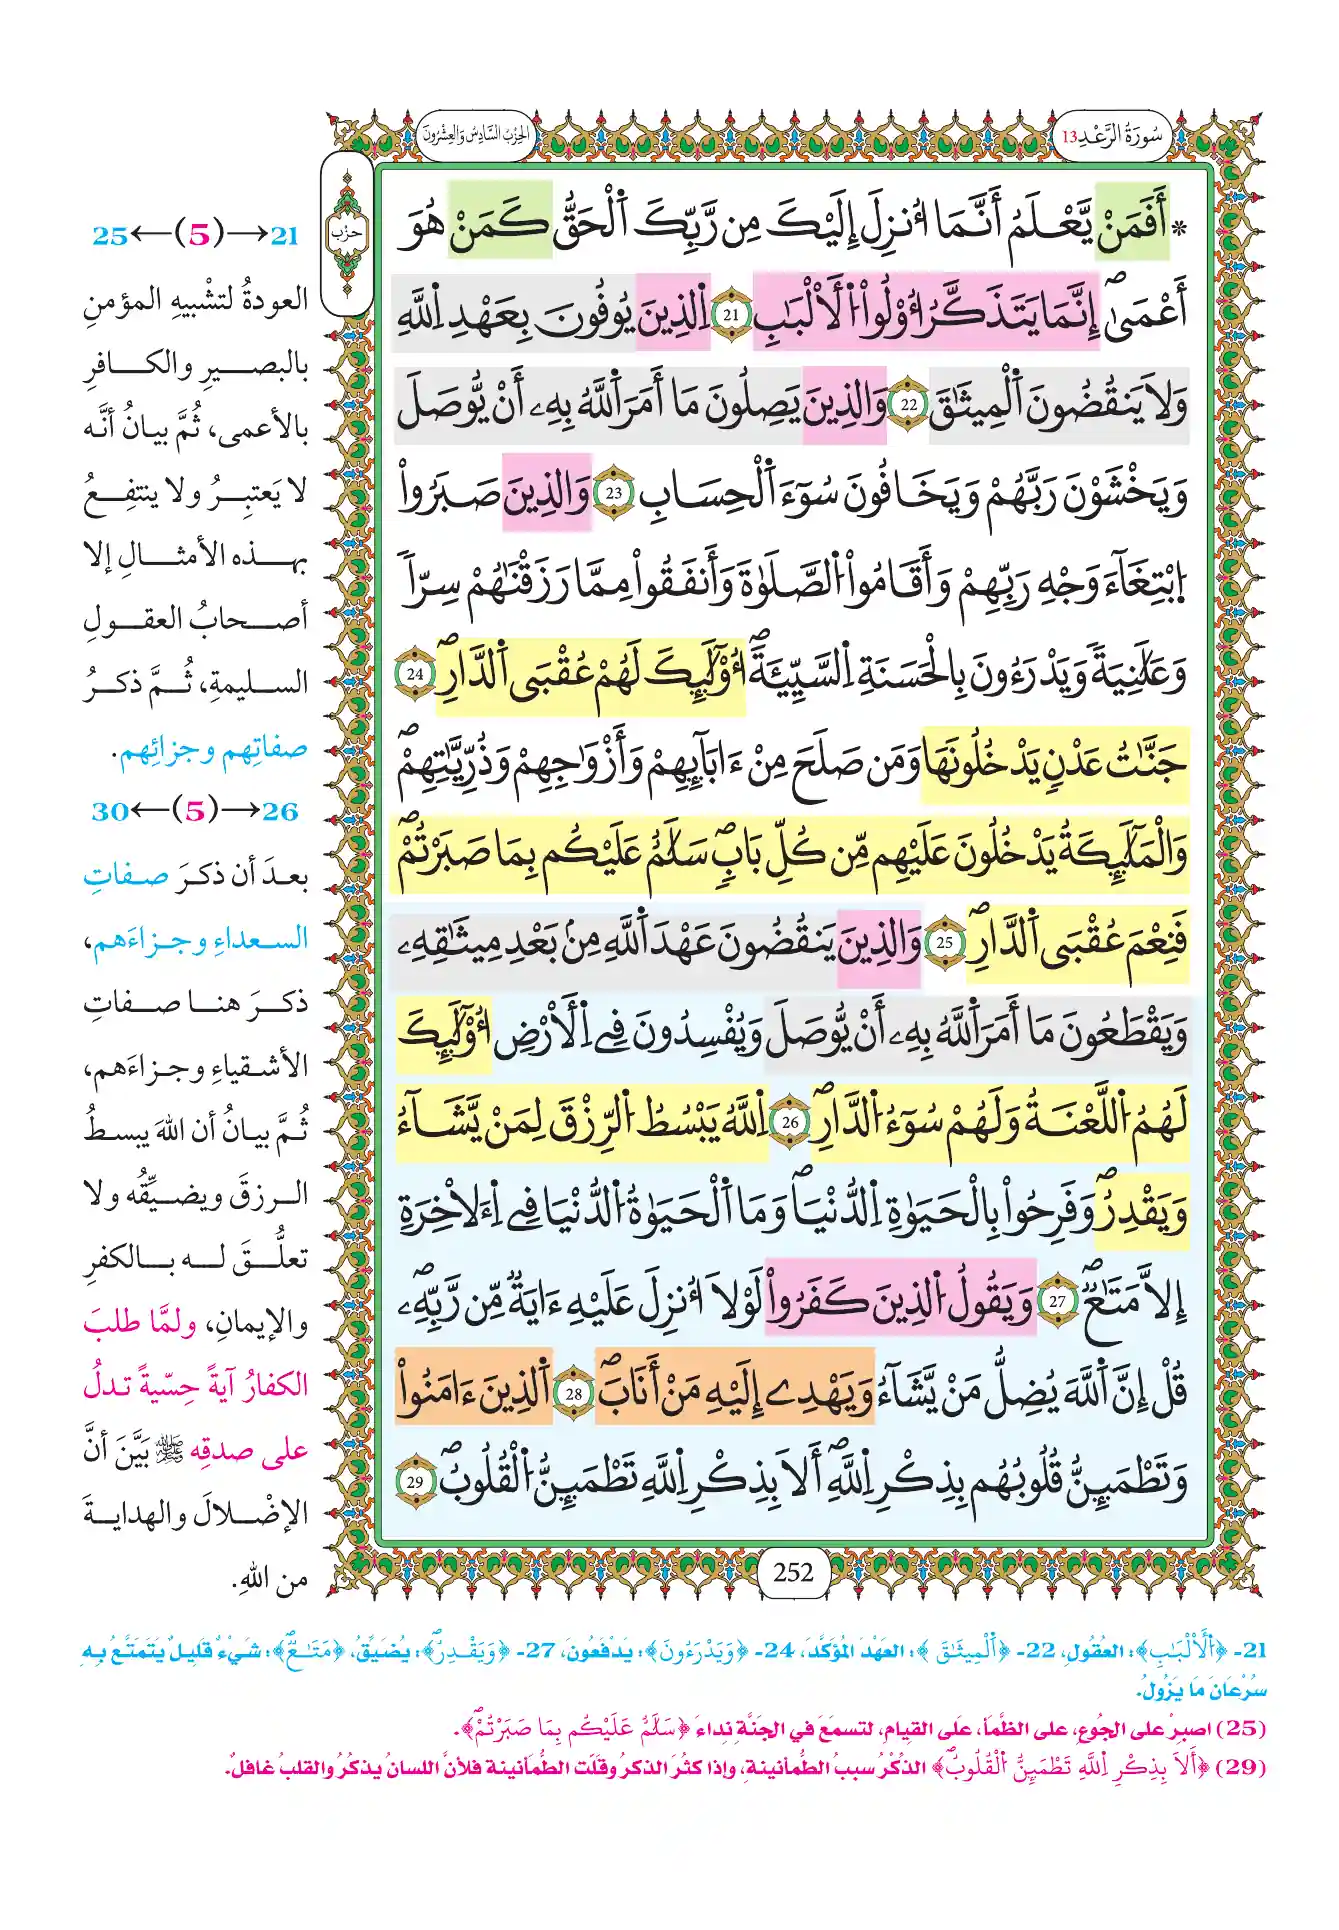 سُورَةُ الرَّعْدِ 13
الحِزْبُ السَّادِسُ وَالعِشْرُونَ
حزب
* أَفَمَنْ يَّعْلَمُ أَنَّمَا أُنزِلَ إِلَيْكَ مِن رَّبِّكَ اَلْحَقُّ كَمَنْ هُوَ
أَعْمَىٰٓ إِنَّمَا يَتَذَكَّرُ أُوْلُواْ اُلَالْبَٰبِ 21 اِلذِينَ يُوفُونَ بِعَهْدِ اِللَّهِ
وَلَا يَنقُضُونَ اَلْمِيثَٰقَ 22 وَالذِينَ يَصِلُونَ مَا أَمَرَ اَللَّهُ بِهِۦ أَنْ يُّوصَلَ
وَيَخْشَوْنَ رَبَّهُمْ وَيَخَافُونَ سُوٓءَ اَلْحِسَابِ 23 وَالذِينَ صَبَرُواْ
اُبْتِغَآءَ وَجْهِ رَبِّهِمْ وَأَقَامُواْ اُلصَّلَوٰةَ وَأَنفَقُواْ مِمَّا رَزَقْنَٰهُمْ سِرّاً
وَعَلَٰنِيَةً وَيَدْرَءُونَ بِالْحَسَنَةِ اِلسَّيِّئَةَ أُوْلَٰٓئِكَ لَهُمْ عُقْبَى اَلدَّارِ 24
جَنَّٰتُ عَدْنٍ يَدْخُلُونَهَا وَمَن صَلَحَ مِنْ ءَابَآئِهِمْ وَأَزْوَٰجِهِمْ وَذُرِّيَّٰتِهِمْ
وَالْمَلَٰٓئِكَةُ يَدْخُلُونَ عَلَيْهِم مِّن كُلِّ بَابٍ سَلَٰمٌ عَلَيْكُم بِمَا صَبَرْتُمْ
فَنِعْمَ عُقْبَى اَلدَّارِ 25 وَالذِينَ يَنقُضُونَ عَهْدَ اَللَّهِ مِنۢ بَعْدِ مِيثَٰقِهِۦ
وَيَقْطَعُونَ مَا أَمَرَ اَللَّهُ بِهِۦ أَنْ يُّوصَلَ وَيُفْسِدُونَ فِي اِلَارْضِ أُوْلَٰٓئِكَ
لَهُمُ اُللَّعْنَةُ وَلَهُمْ سُوٓءُ اُلدَّارِ 26 اِللَّهُ يَبْسُطُ اُلرِّزْقَ لِمَنْ يَّشَآءُ
وَيَقْدِرُ وَفَرِحُواْ بِالْحَيَوٰةِ اِلدُّنْيَا وَمَا اَلْحَيَوٰةُ اُلدُّنْيَا فِي اِءَلَاخِرَةِ
إِلَّا مَتَٰعٌ 27 وَيَقُولُ اُلذِينَ كَفَرُواْ لَوْلَا أُنزِلَ عَلَيْهِ ءَايَةٌ مِّن رَّبِّهِۦ
قُلْ إِنَّ اَللَّهَ يُضِلُّ مَنْ يَّشَآءُ وَيَهْدِي إِلَيْهِ مَنْ أَنَابَ 28 اَلذِينَ ءَامَنُواْ
وَتَطْمَئِنُّ قُلُوبُهُم بِذِكْرِ اِللَّهِ أَلَا بِذِكْرِ اِللَّهِ تَطْمَئِنُّ اُلْقُلُوبُ 29
252
21→(5)←25
العودةُ لتشْبيهِ المؤمنِ
بالبصيرِ والكافرِ
بالأعمى، ثُمَّ بيانُ أنَّه
لا يَعتبِرُ ولا ينتفِعُ
بهذه الأمثالِ إلا
أصحابُ العقولِ
السليمةِ، ثُمَّ ذكرُ
صفاتِهم وجزائِهم.
26→(5)←30
بعدَ أن ذكرَ صفاتِ
السعداءِ وجزاءَهم،
ذكرَ هنا صفاتِ
الأشقياءِ وجزاءَهم،
ثُمَّ بيانُ أن اللهَ يبسطُ
الرزقَ ويضيِّقُه ولا
تعلُّقَ له بالكفرِ
والإيمانِ، ولمَّا طلبَ
الكفارُ آيةً حِسّيةً تدلُ
على صدقِه ﷺ بَيَّنَ أنَّ
الإضْلالَ والهدايةَ
من اللهِ.
21- ﴿اُلَالْبَٰبِ﴾: العُقُولِ، 22- ﴿اَلْمِيثَٰقَ﴾: العَهْدَ المُؤَكَّدَ، 24- ﴿وَيَدْرَءُونَ﴾: يَدْفَعُونَ، 27- ﴿وَيَقْدِرُ﴾: يُضَيِّقُ، ﴿مَتَٰعٌ﴾: شَيْءٌ قَلِيلٌ يُتَمَتَّعُ بِهِ
سُرْعَانَ مَا يَزُولُ.
(25) اصبِرْ على الجُوعِ، على الظَّمأ، على القيام، لتسمَعَ في الجَنَّةِ نِداءَ ﴿سَلَٰمٌ عَلَيْكُم بِمَا صَبَرْتُمْ﴾.
(29) ﴿أَلَا بِذِكْرِ اِللَّهِ تَطْمَئِنُّ اُلْقُلُوبُ﴾ الذِّكْرُ سببُ الطُّمأنينةِ، وإذا كثُرَ الذكرُ وقَلَّت الطُّمَأنينة فلأنَّ اللسانُ يذكُرُ والقلبَ غافلٌ.